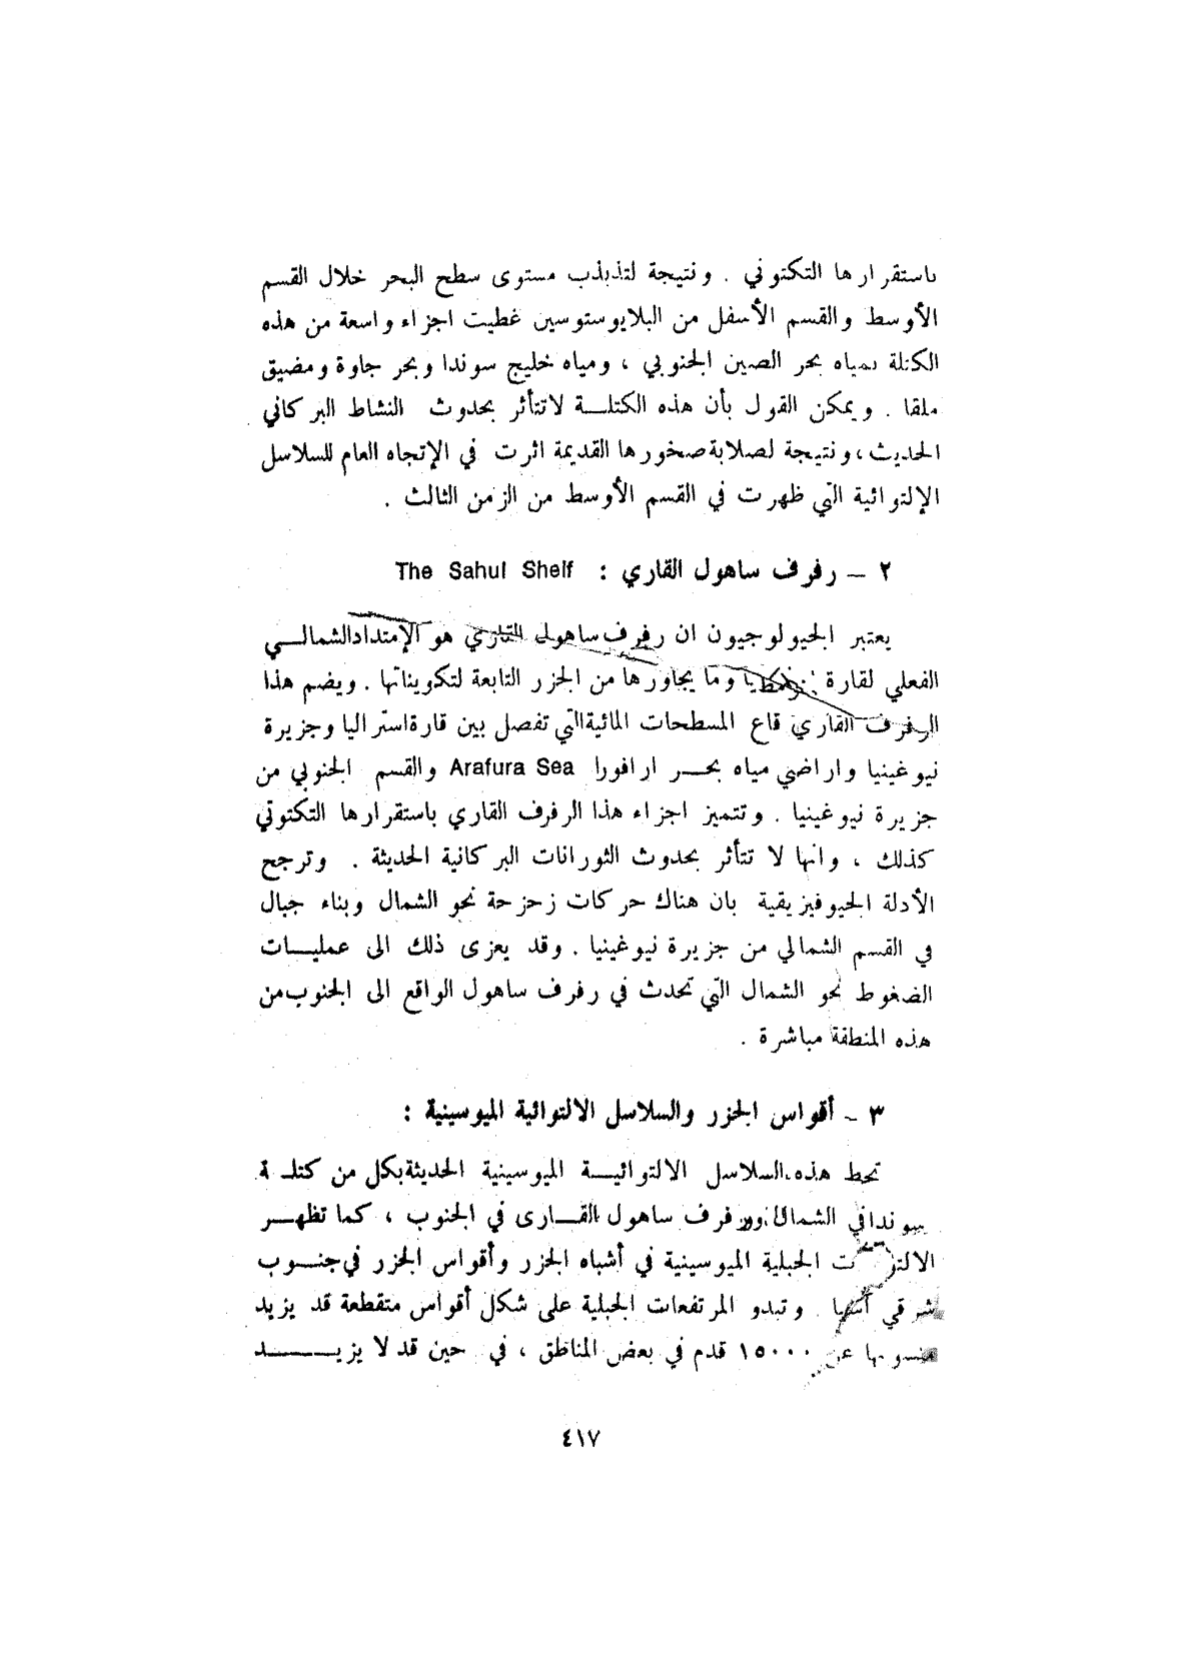 باستقرارها التكتوني . ونتيجة لتذبذب مستوى سطح البحر خلال القسم
الأوسط والقسم الأسفل من البلايوستوسين غطيت اجزاء واسعة من هذه
الكتلة بمياه بحر الصين الجنوبي ، ومياه خليج سوندا وبحر جاوة ومضيق
ملقا . ويمكن القول بأن هذه الكتلــة لاتتأثر بحدوث النشاط البركاني
الحديث، ونتيجة لصلابة صخورها القديمة اثرت في الإتجاه العام للسلاسل
الإلتوائية التي ظهرت في القسم الأوسط من الزمن الثالث .
٢ – رفرف ساهول القاري : The Sahul Shelf
يعتبر الجيولوجيون ان رفرف ساهول القاري هو الإمتداد الشمالــي
الفعلي لقارة وما يجاورها من الجزر التابعة لتكويناتها . ويضم هذا
الرفرف القاري قاع المسطحات المائية التي تفصل بين قارة استراليا وجزيرة
نيوغينيا واراضي مياه بحــر ارافورا Arafura Sea والقسم الجنوبي من
جزيرة نيوغينيا . وتتميز اجزاء هذا الرفرف القاري باستقرارها التكتوني
كذلك ، وانها لا تتأثر بحدوث الثورانات البركانية الحديثة . وترجح
الأدلة الجيوفيزيقية بان هناك حركات زحزحة نحو الشمال وبناء جبال
في القسم الشمالي من جزيرة نيوغينيا . وقد يعزى ذلك الى عمليــات
الضغوط نحو الشمال التي تحدث في رفرف ساهول الواقع الى الجنوب من
هذه المنطقة مباشرة .
٣ – أقواس الجزر والسلاسل الالتوائية الميوسينية :
تحط هذه السلاسل الالتوائيــة الميوسينية الحديثة بكل من كتلــة
سوندا في الشمال ورفرف ساهول القــارى في الجنوب ، كما تظهــر
الجبلية الميوسينية في أشباه الجزر وأقواس الجزر في جنــوب
شرقي آسيا . وتبدو المرتفعات الجبلية على شكل أقواس متقطعة قد يزيد
منسوبها عن ١٥٠٠٠ قدم في بعض المناطق ، في حين قد لا يزيــــد
٤١٧